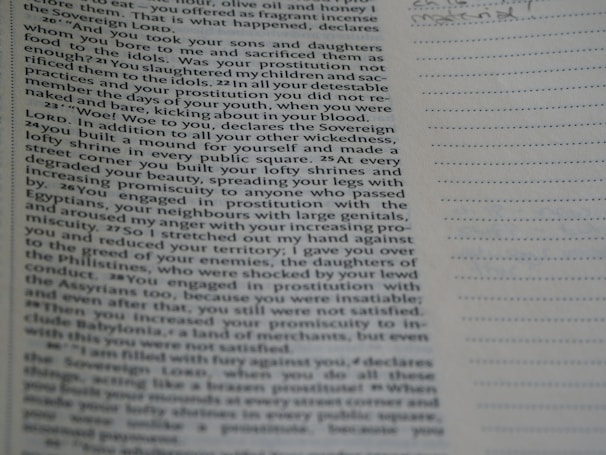 olive oil and honey I
to eat—you offered as fragrant incense
before them. That is what happened, declares
the Sovereign LORD.
20 ‘ “And you took your sons and daughters
whom you bore to me and sacrificed them as
food to the idols. Was your prostitution not
enough? 21 You slaughtered my children and sac-
rificed them to the idols. 22 In all your detestable
practices and your prostitution you did not re-
member the days of your youth, when you were
naked and bare, kicking about in your blood.
23 ‘ “Woe! Woe to you, declares the Sovereign
LORD. In addition to all your other wickedness,
24 you built a mound for yourself and made a
lofty shrine in every public square. 25 At every
street corner you built your lofty shrines and
degraded your beauty, spreading your legs with
increasing promiscuity to anyone who passed
by. 26 You engaged in prostitution with the
Egyptians, your neighbours with large genitals,
and aroused my anger with your increasing pro-
miscuity. 27 So I stretched out my hand against
you and reduced your territory; I gave you over
to the greed of your enemies, the daughters of
the Philistines, who were shocked by your lewd
conduct. 28 You engaged in prostitution with
the Assyrians too, because you were insatiable;
and even after that, you still were not satisfied.
29 Then you increased your promiscuity to in-
clude Babylonia, a land of merchants, but even
with this you were not satisfied.
30 ‘ “I am filled with fury against you, declares
the Sovereign LORD, when you do all these
things, acting like a brazen prostitute! 31 When
you built your mounds at every street corner and
made your lofty shrines in every public square,
you were unlike a prostitute, because you
scorned payment.